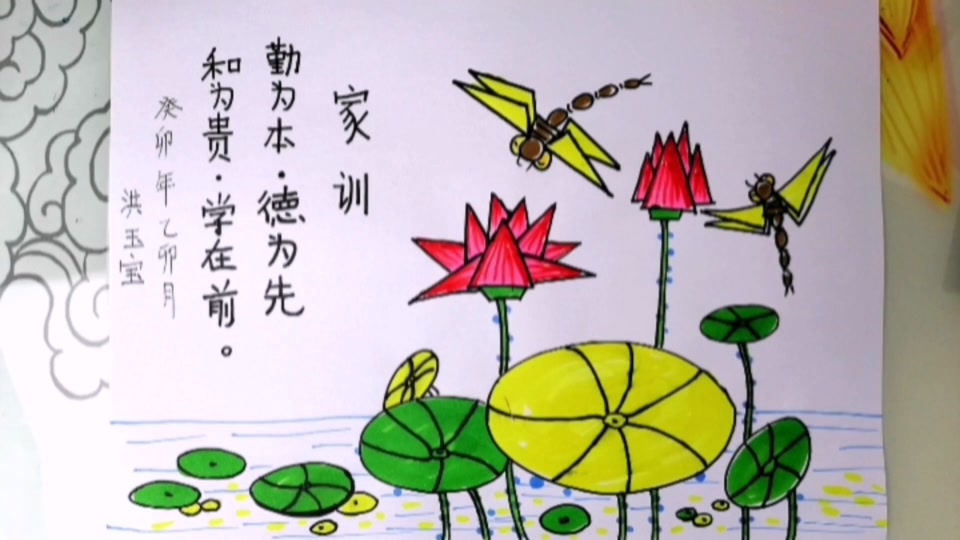 家训
勤为本·德为先
和为贵·学在前。
癸卯年乙卯月
洪玉宝